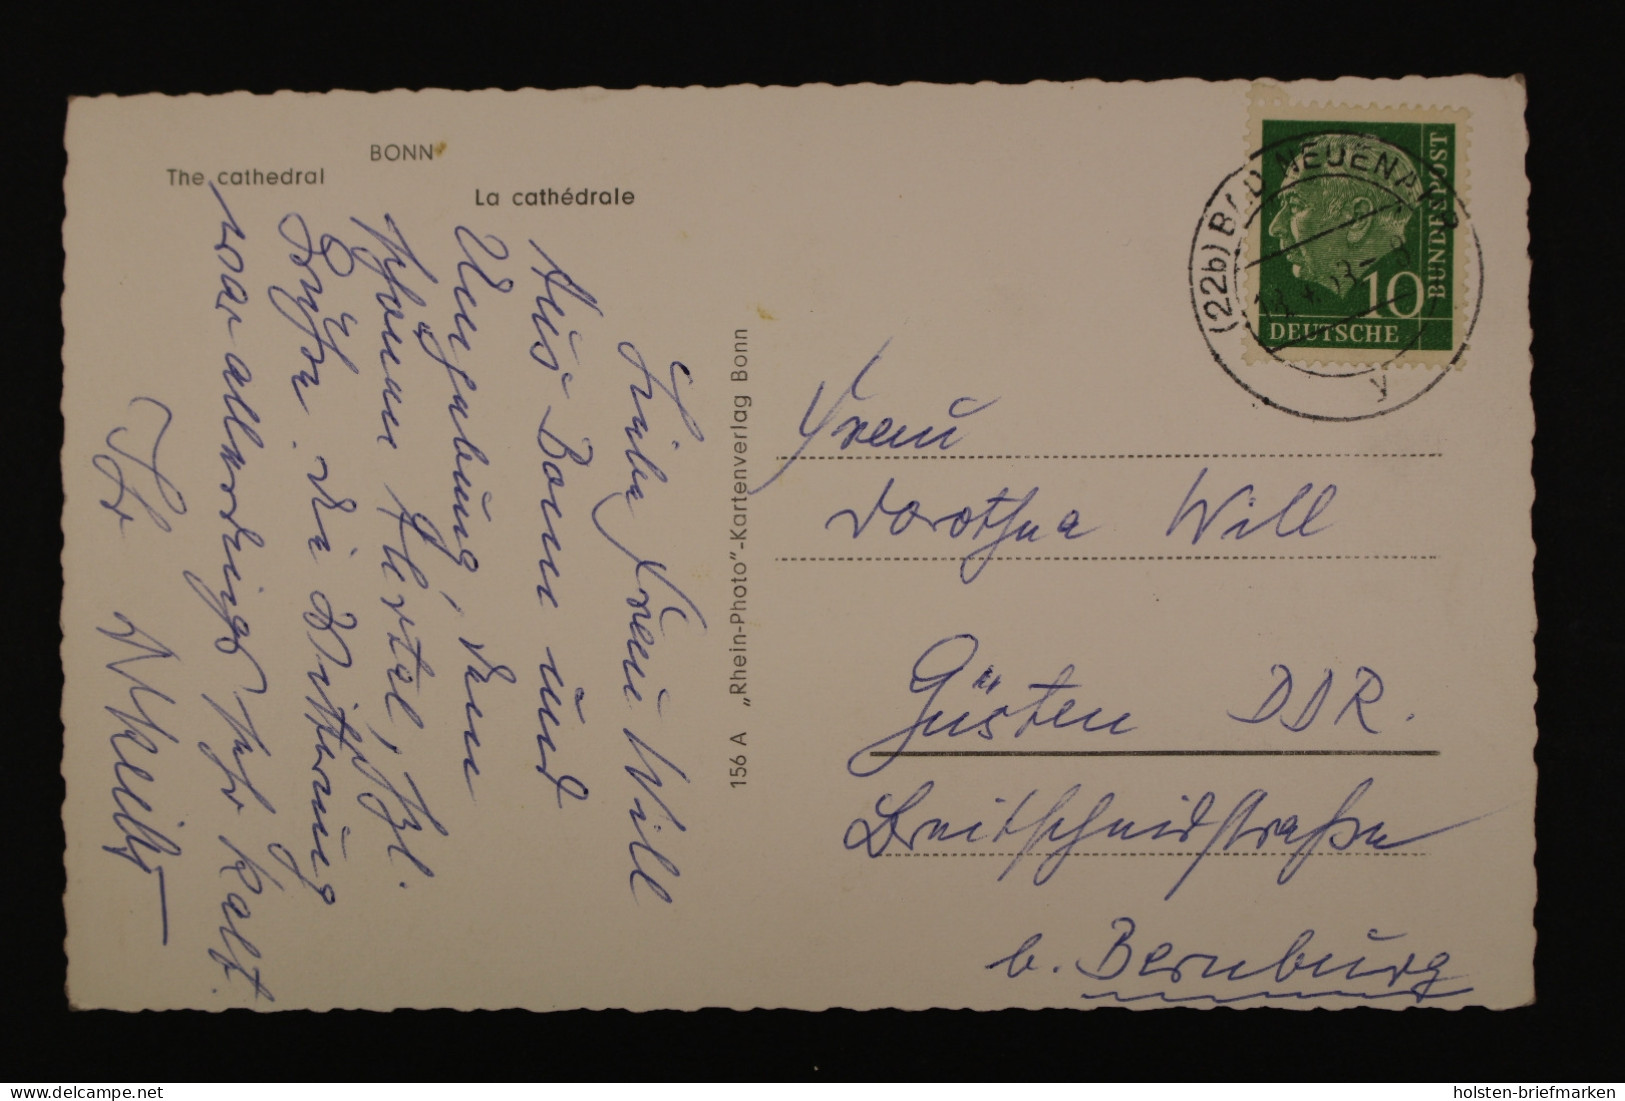 BONN
The cathedral
La cathédrale
Liebe Frau Will
Aus Bonn und
Umgebung, dem
schönen Ahrtal, hzl.
Grüße. Die Witterung
war allerdings sehr kalt.
Ihr
156 A „Rhein-Photo"-Kartenverlag Bonn
(22b) BAD NEUENAHR
y
10
DEUTSCHE
BUNDESPOST
Frau
Dorothea Will
Güsten DDR.
Breitscheidstraße
b. Bernburg
delcampe.net
holsten-briefmarken